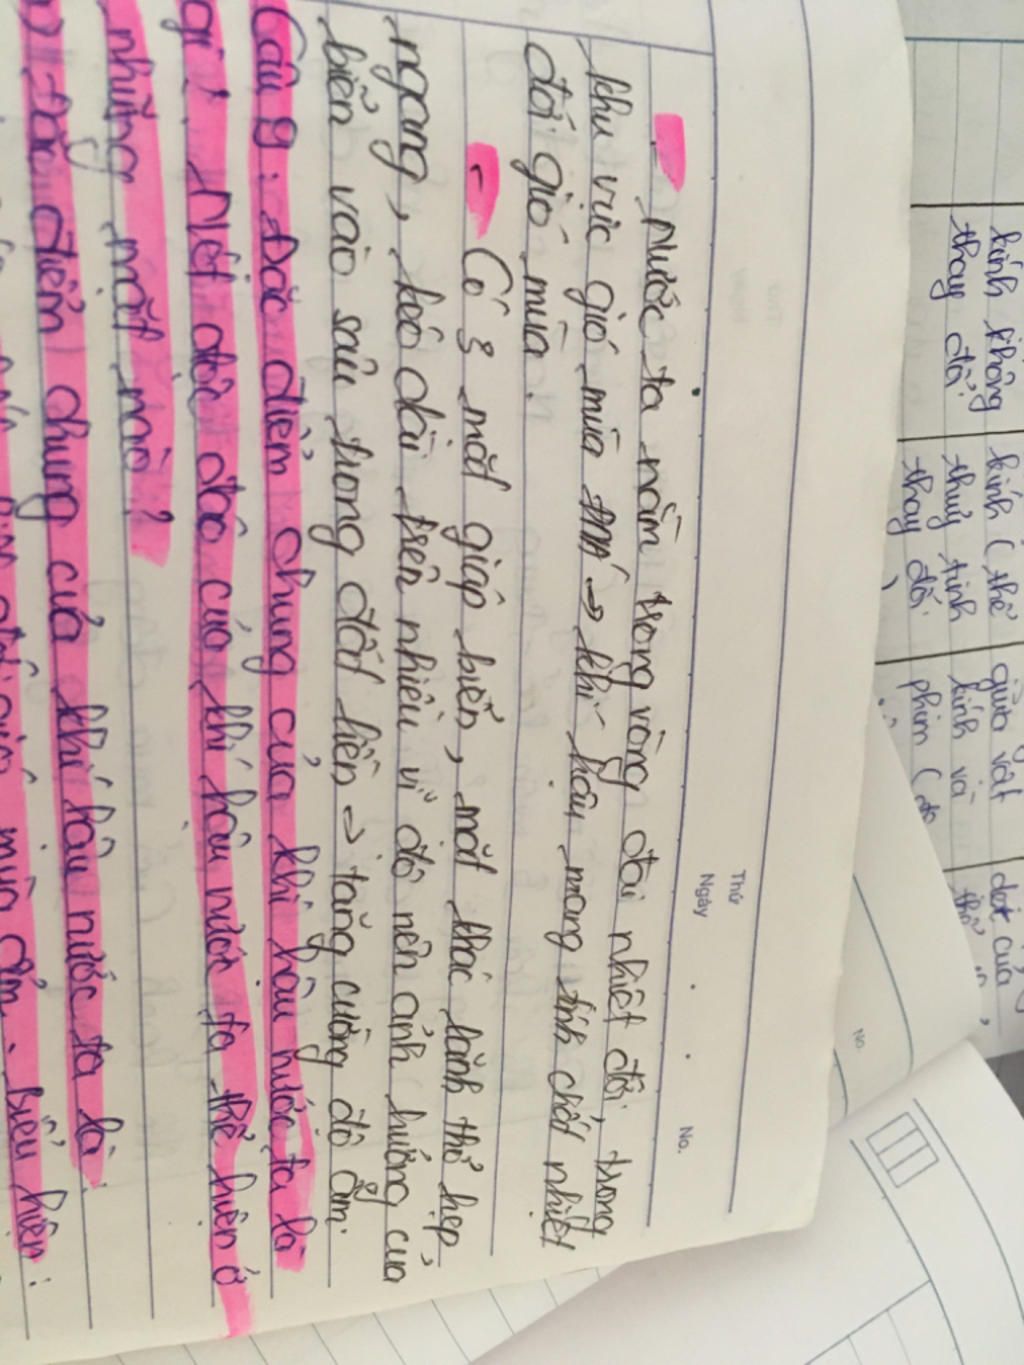 Thứ
Ngày
No.
- Nước ta nằm trong vòng đai nhiệt đới, trong
khu vực gió mùa → khí hậu mang tính chất nhiệt
đới gió mùa.
- Có 3 mặt giáp biển, mặt khác lãnh thổ hẹp
ngang, kéo dài trên nhiều vĩ độ nên ảnh hưởng của
biển vào sâu trong đất liền → tăng cường độ ẩm.
Câu 9: Đặc điểm chung của khí hậu nước ta là
gì? Nét độc đáo của khí hậu nước ta thể hiện ở
những mặt nào?
Đặc điểm chung của khí hậu nước ta là:
mùa ẩm. Biểu hiện:
kính không
thay đổi
kính (thể
thuỷ tinh
thay đổi
)
giữa vật
kính và
phim (
dẹt của
No.